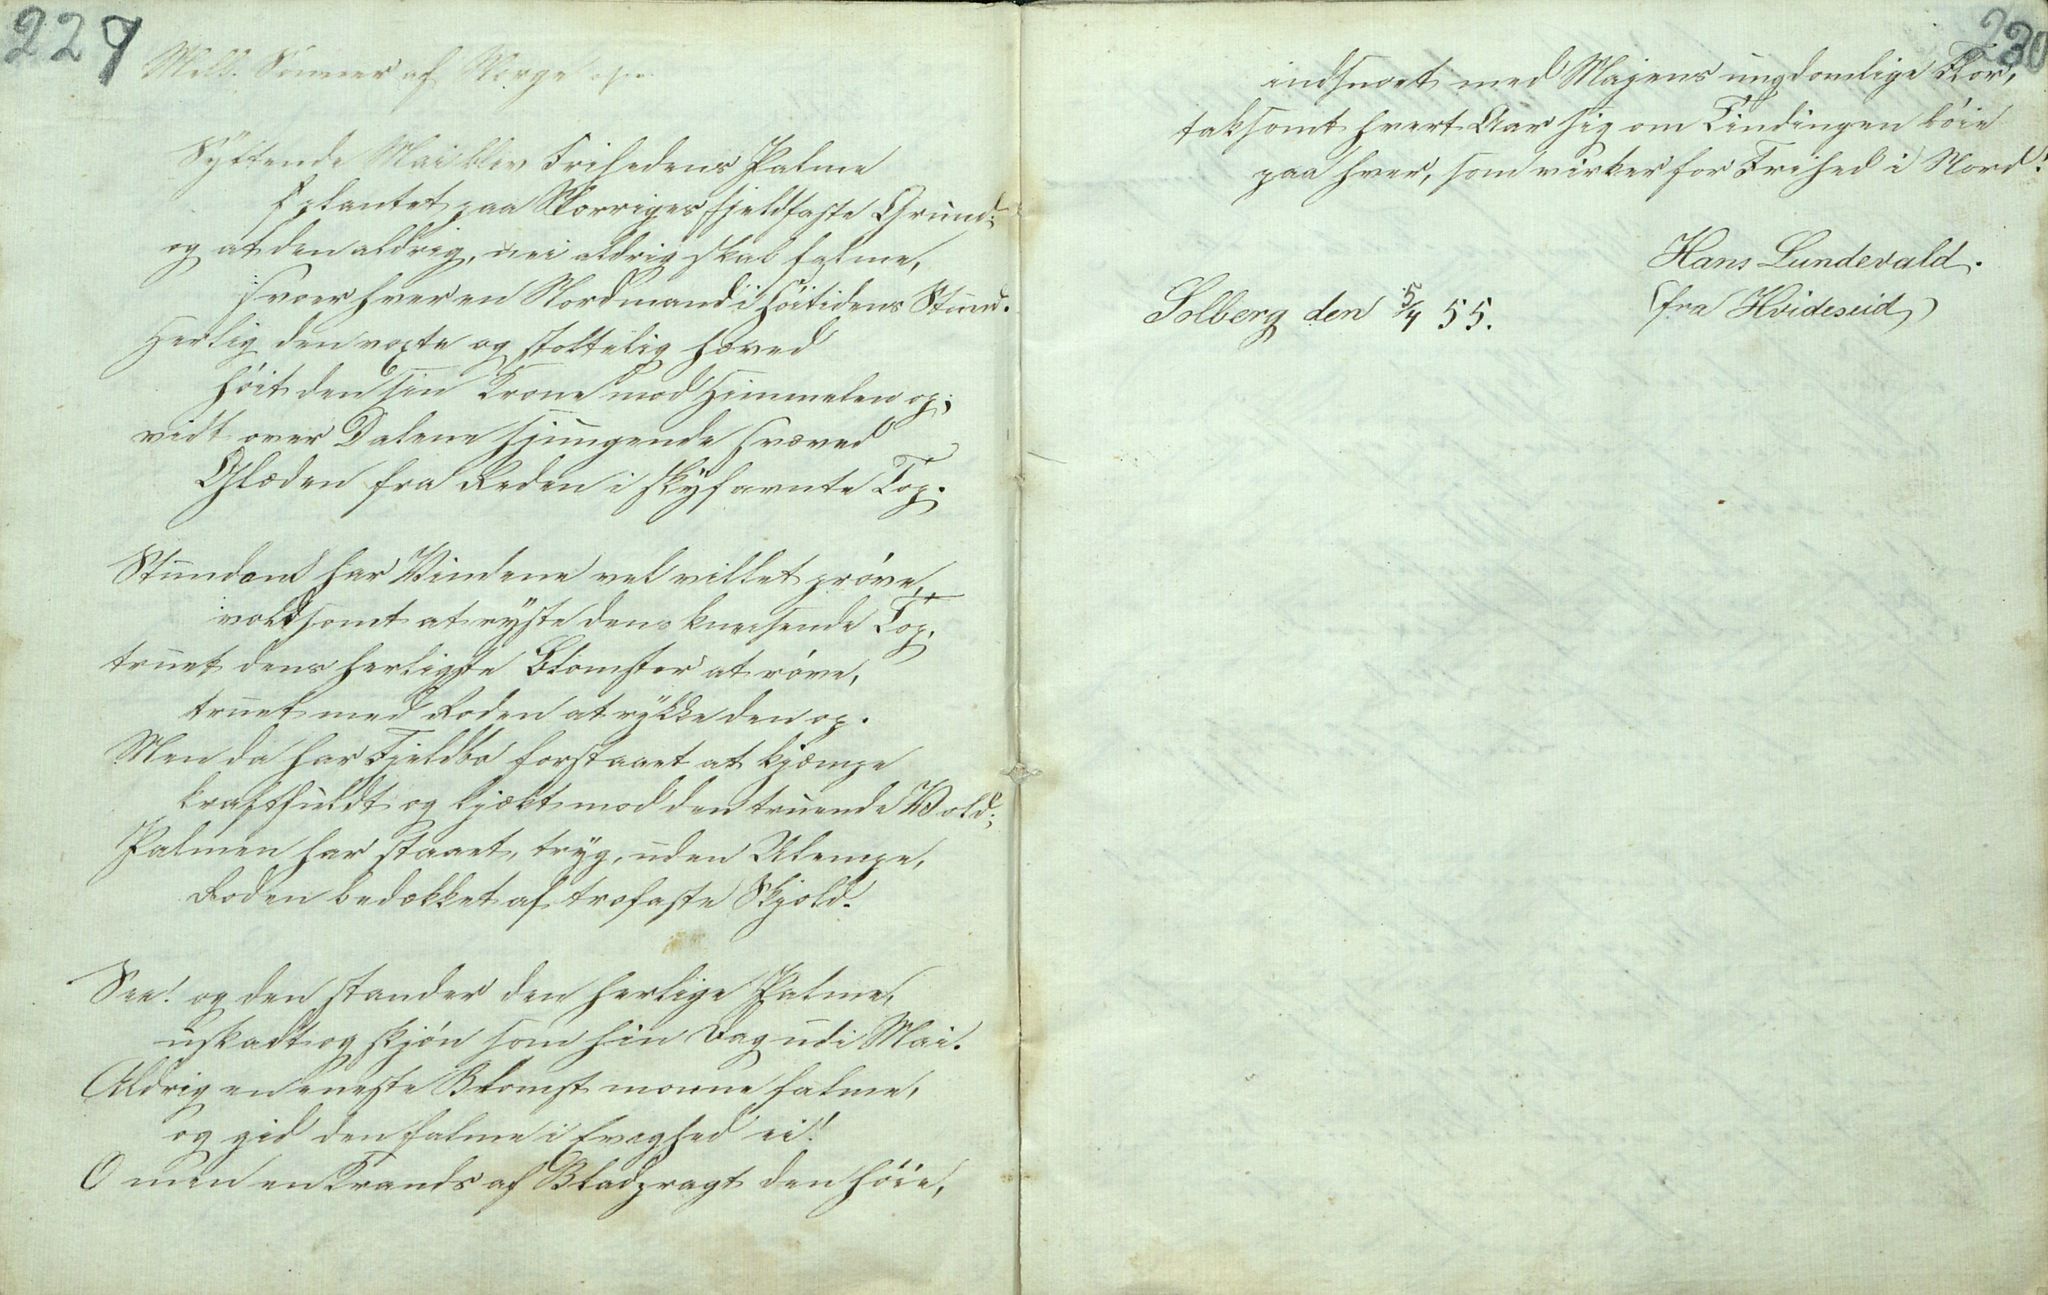 229
Mell. Sønner af Norge &c.
Syttende Mai blev Frihedens Palme
plantet paa Norriges fjeldfaste Grund;
og at den aldrig, nei aldrig skal falme,
svoer hver en Nordmand i Høitidens Stund.
Herlig den voxte og stoltelig hæved
høit den sin Krone mod Himmelen op;
vidt over Dalene sjungende svæved
Glæden fra Reden i skyfavnte Top.
Stundom har Vindene vel villet prøve,
voldsomt at ryste dens kneisende Top,
truet dens herligste Blomster at røve,
truet med Roden at rykke den op.
Men da har Fjeldbo forstaaet at kjæmpe
kraftfuldt og kjækt mod den truende Vold;
Palmen har staaet, tryg, uden Ulempe,
Roden bedækket af trofaste Skjold.
See! og den stander den herlige Palme,
uskadt og skjøn som hin Dag udi Mai.
Aldrig en eneste Blomst monne falme,
og gid den falme i Evighed ei!
O men en Krands af Bladpragt den høie,
230
indsnoet med Majens ungdomlige Flor,
taksomt hvert Aar sig om Tindingen bøie
paa hver, som virker for Frihed i Nord!
Hans Lundevald.
(fra Hvideseid)
Solberg den 5/4 55.